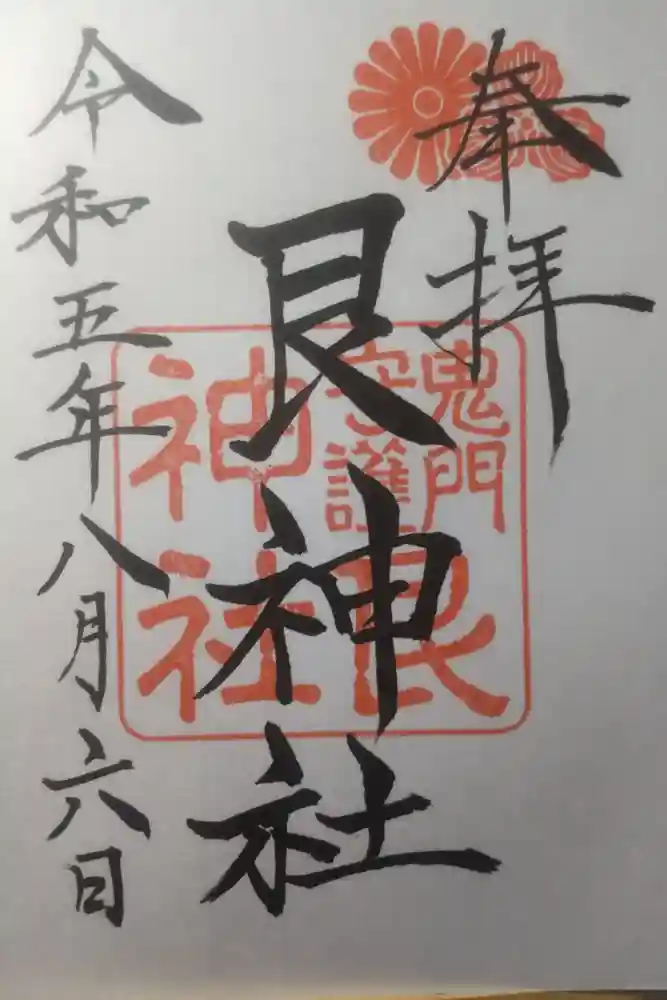 奉拝
艮神社
鬼門
守護
艮
神社
令和五年八月六日